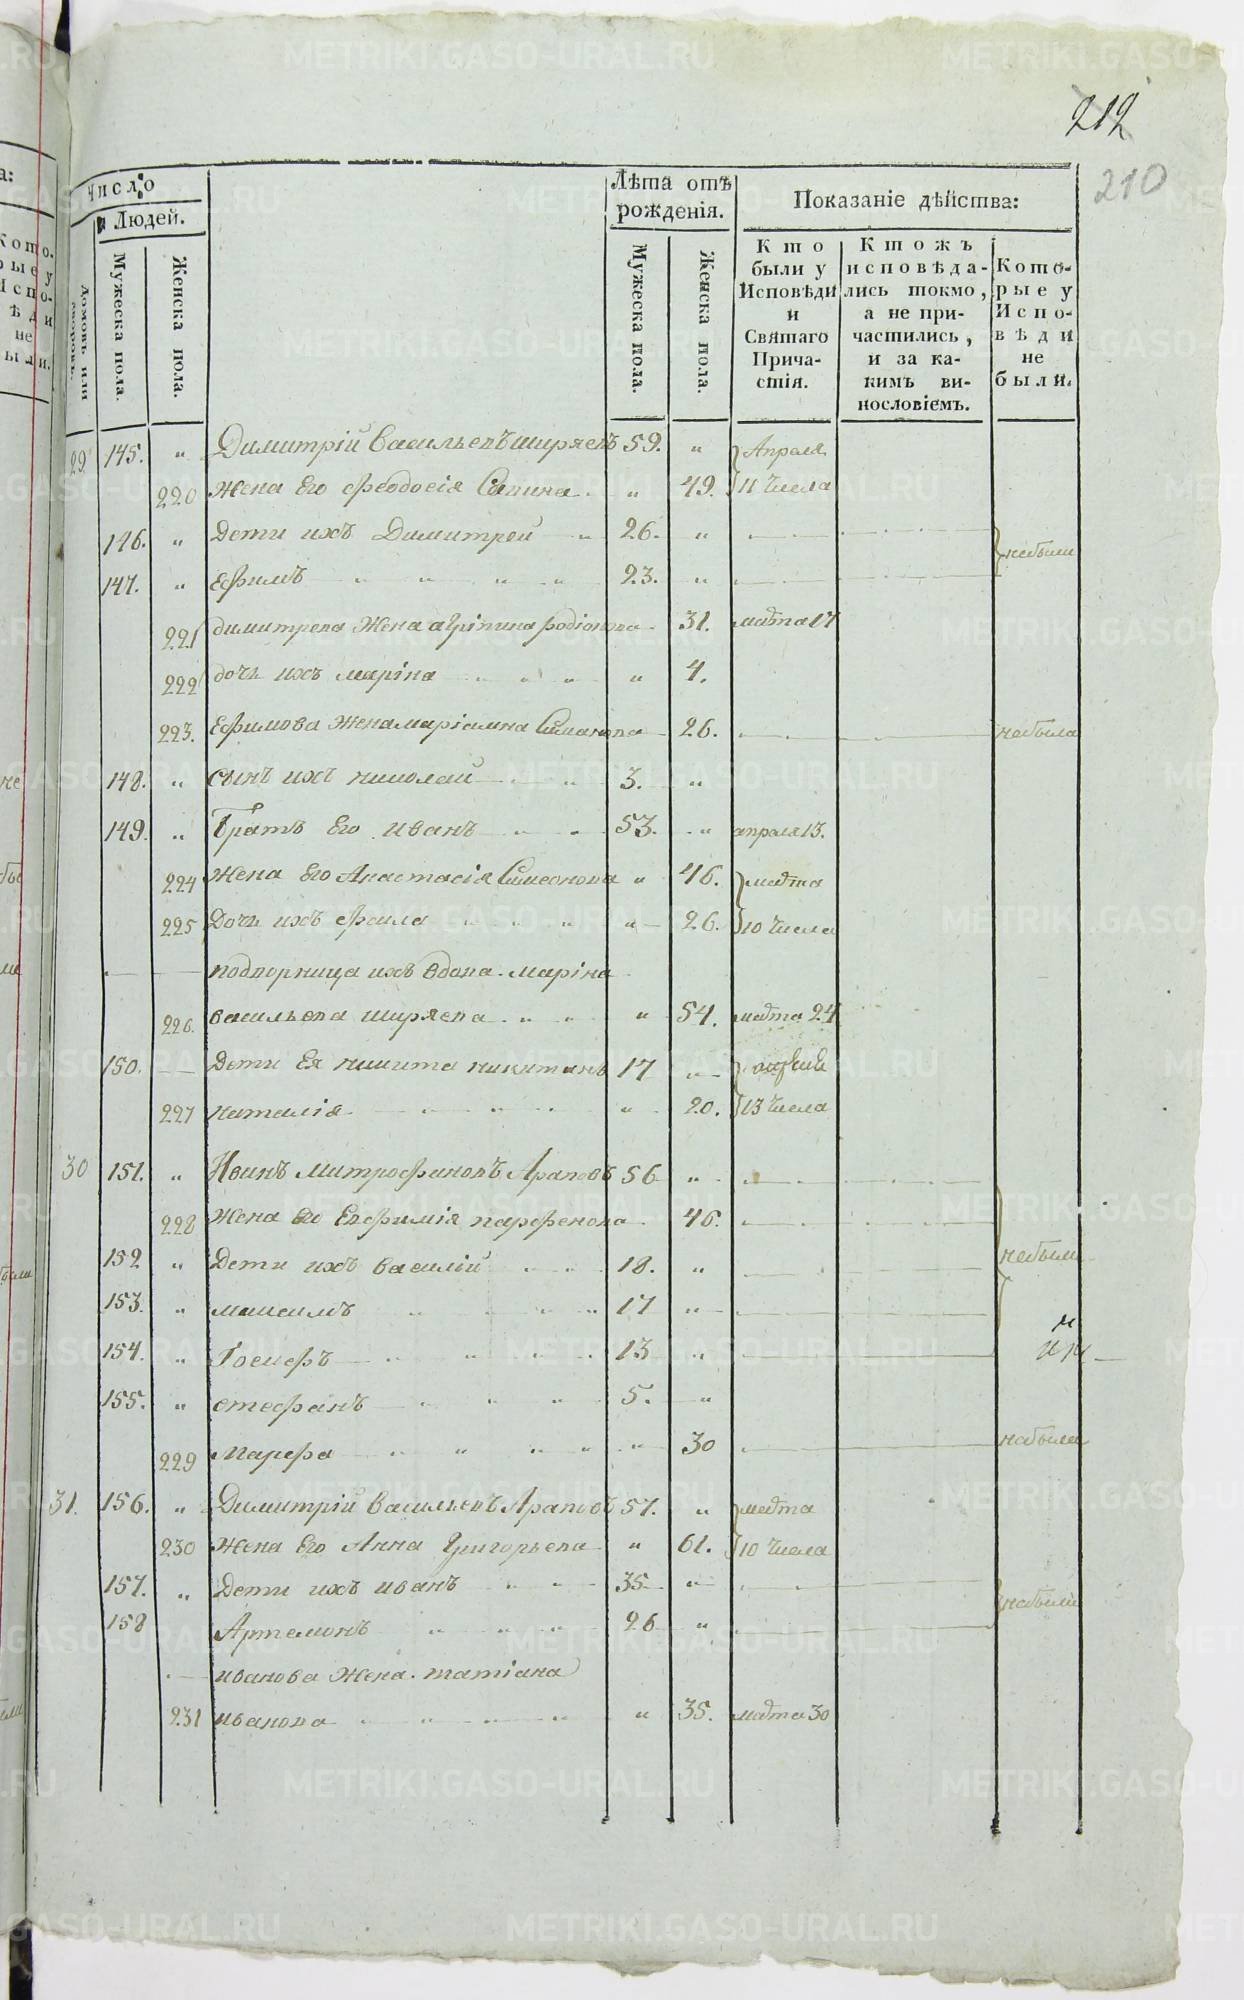 212
210
Число
Людей.
Лѣта отъ
рожденія.
Показаніе дѣйства:
Домовъ или
дворовъ.
Мужеска пола.
Женска пола.
Мужеска пола.
Женска пола.
Кто
были у
Исповѣди
и
Святаго
Прича-
стія.
Ктожъ
исповѣда-
лись токмо,
а не при-
частились,
и за ка-
кимъ ви-
нословіемъ.
Кото-
рые у
Испо-
вѣди
не
были.
29 145. " Димитрій Васильевъ Ширяевъ 59. " Апреля
220 Жена Его Феодосія Савина " 49. 11 Числа
146. " Дети ихъ Димитрей " 26. "
небыли
147. " Ефимъ " " " " 23. "
221 Димитрева Жена агріпина родіонова 31. марта 17
222 дочь ихъ маріна " " " " 4.
223. Ефимова Жена маріамна Симанова 26. небыла
148. " сынъ ихъ николай " " 3. "
149. " Братъ Его иванъ " " 53. " апреля 13.
224 Жена Его Анастасія Симеонова " 46. марта
225 Дочь ихъ фекла " " " " 26. 10 Числа
подворница ихъ вдова маріна
226. васильева ширяева " " " 54. марта 24
150. Дети Ея никита никитинъ 17 "
227 наталія " " " " 20. 13 Числа
30 151. " Иванъ Митрофановъ Араповъ 56 "
228 Жена Его Евфимія парфенова 46.
152 " Дети ихъ василій " " 18. " небыли
153. " максимъ " " " " 17 "
154. " " " " " 13 "
155. " стефанъ " " " 5. "
229 Марфа " " " " " 30 небыла
31. 156. " Димитрій Васильевъ Араповъ 57. " марта
230 Жена Его Анна Григорьева " 61. 10 Числа
157. " Дети ихъ иванъ " " 35 "
небыли
158 Артемонъ " " " 26 "
иванова Жена татіана
231 иванова " " " " " 35. марта 30
METRIKI.GASO-URAL.RU